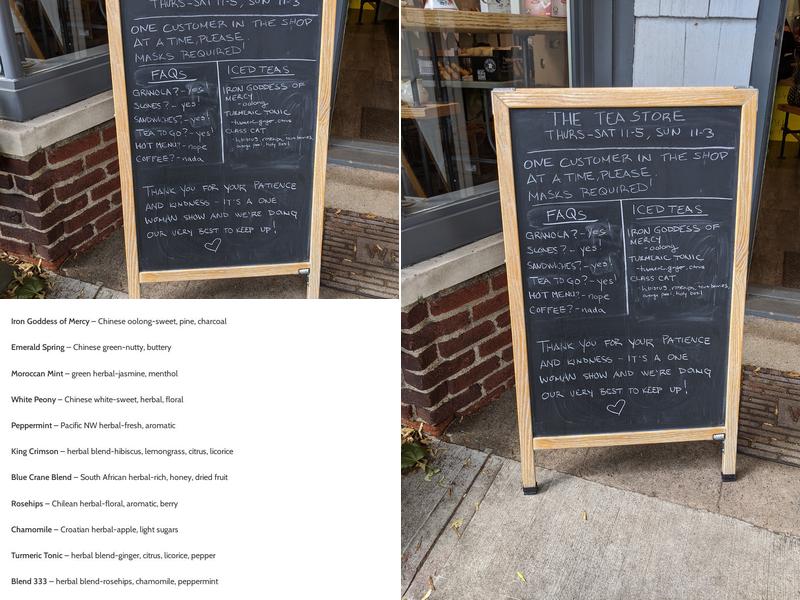 THURS-SAT 11-5, SUN 11-3
ONE CUSTOMER IN THE SHOP
AT A TIME, PLEASE.
MASKS REQUIRED!
FAQs
GRANOLA? - yes!
SCONES? - yes!
SANDWICHES? - yes!
TEA TO GO? - yes!
HOT MENU? - nope
COFFEE? - nada
ICED TEAS
IRON GODDESS OF
MERCY
- oolong
TURMERIC TONIC
- turmeric, ginger, citrus
CLASS CAT
THANK YOU FOR YOUR PATIENCE
AND KINDNESS - IT'S A ONE
WOMAN SHOW AND WE'RE DOING
OUR VERY BEST TO KEEP UP!
Iron Goddess of Mercy – Chinese oolong-sweet, pine, charcoal
Emerald Spring – Chinese green-nutty, buttery
Moroccan Mint – green herbal-jasmine, menthol
White Peony – Chinese white-sweet, herbal, floral
Peppermint – Pacific NW herbal-fresh, aromatic
King Crimson – herbal blend-hibiscus, lemongrass, citrus, licorice
Blue Crane Blend – South African herbal-rich, honey, dried fruit
Rosehips – Chilean herbal-floral, aromatic, berry
Chamomile – Croatian herbal-apple, light sugars
Turmeric Tonic – herbal blend-ginger, citrus, licorice, pepper
Blend 333 – herbal blend-rosehips, chamomile, peppermint
THE TEA STORE
THURS-SAT 11-5, SUN 11-3
ONE CUSTOMER IN THE SHOP
AT A TIME, PLEASE.
MASKS REQUIRED!
FAQs
GRANOLA? - yes!
SCONES? - yes!
SANDWICHES? - yes!
TEA TO GO? - yes!
HOT MENU? - nope
COFFEE? - nada
ICED TEAS
IRON GODDESS OF
MERCY
- oolong
TURMERIC TONIC
- turmeric, ginger, citrus
CLASS CAT
THANK YOU FOR YOUR PATIENCE
AND KINDNESS - IT'S A ONE
WOMAN SHOW AND WE'RE DOING
OUR VERY BEST TO KEEP UP!